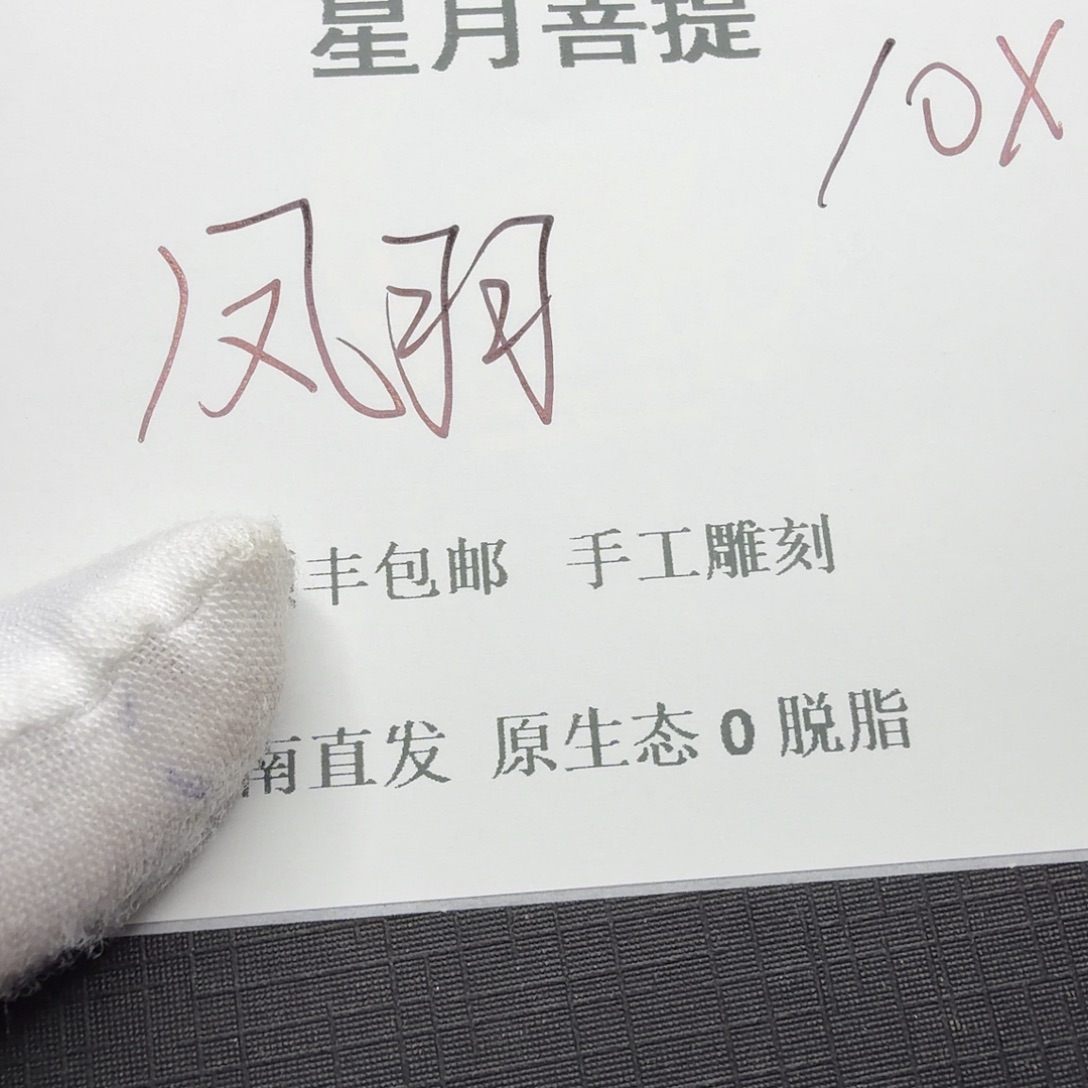 星月菩提
10X
凤羽
丰包邮 手工雕刻
南直发 原生态0脱脂